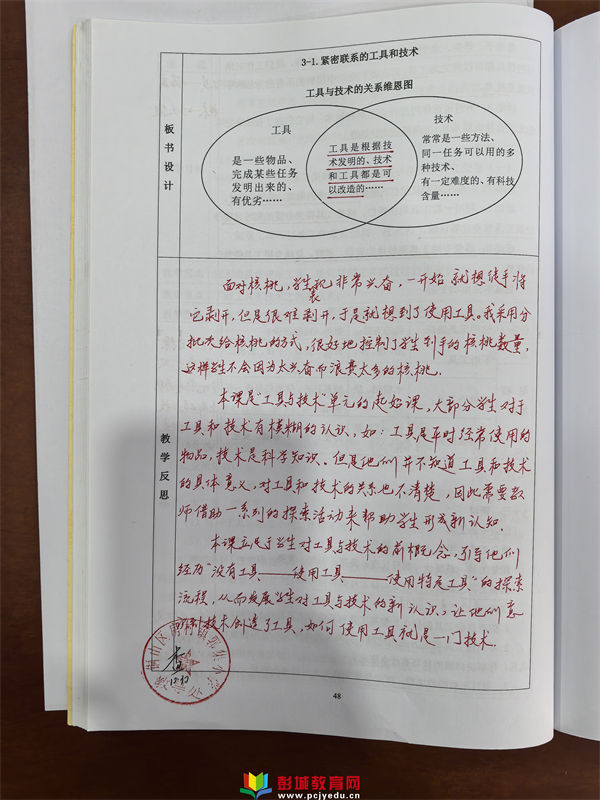 3-1.紧密联系的工具和技术
工具与技术的关系维恩图
板书设计
工具
是一些物品、
完成某些任务
发明出来的、
有优劣……
工具是根据技
术发明的、技术
和工具都是可
以改造的……
技术
常常是一些方法、
同一任务可以用的多
种技术、
有一定难度的、有科技
含量……
教学反思
面对核桃，学生表现非常兴奋，一开始就想徒手将
它剥开，但是很难剥开，于是就想到了使用工具。我采用分
批次给核桃的方式，很好地控制了学生到手的核桃数量，
这样学生不会因为太兴奋而浪费太多的核桃。
本课是“工具与技术”单元的起始课，大部分学生对于
工具和技术有模糊的认识，如：工具是平时经常使用的
物品，技术是科学知识。但是他们并不知道工具和技术
的具体意义，对工具和技术的关系也不清楚，因此需要教
师借助一系列的探索活动来帮助学生形成新认知。
本课立足于学生对工具与技术的前概念，引导他们
经历“没有工具——使用工具——使用特定工具”的探索
流程，从而发展学生对工具与技术的新认识，让他们意
技术创造了工具，如何使用工具就是一门技术。
教导处
48
彭城教育网
www.pcjyedu.cn